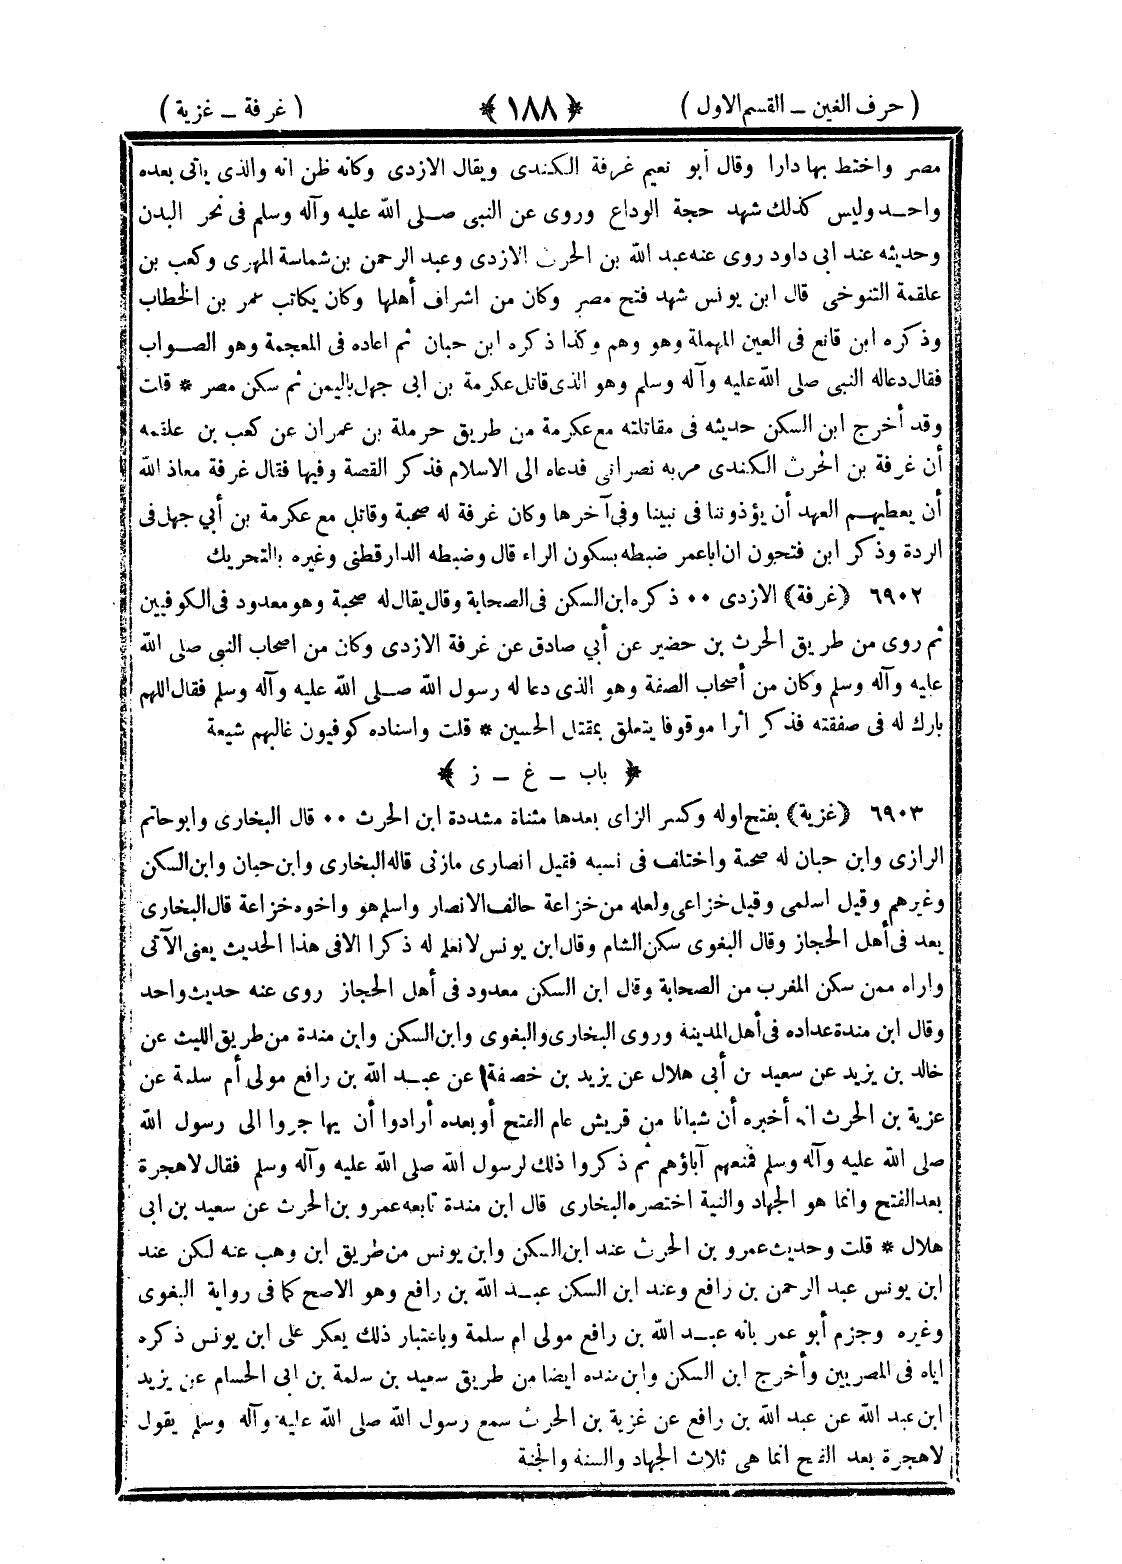 ( حرف الغين ــ القسم الاول ) ﴿ ١٨٨ ﴾ ( غرفة ــ غزية )
مصر واختط بها دارا وقال أبو نعيم غرفة الكندى ويقال الازدى وكانه ظن انه والذى ياتى بعده
واحد وليس كذلك شهد حجة الوداع وروى عن النبى صلى الله عليه وآله وسلم فى نحر البدن
وحديثه عند ابى داود روى عنه عبد الله بن الحرث الازدى وعبد الرحمن بن شماسة المهرى وكعب بن
علقمة التنوخى قال ابن يونس شهد فتح مصر وكان من اشراف أهلها وكان يكاتب عمر بن الخطاب
وذكره ابن قانع فى العين المهملة وهو وهم وكذا ذكره ابن حبان ثم اعاده فى المعجمة وهو الصواب
فقال دعاله النبى صلى الله عليه وآله وسلم وهو الذى قاتل عكرمة بن ابى جهل باليمن ثم سكن مصر * قلت
وقد أخرج ابن السكن حديثه فى مقاتلته مع عكرمة من طريق حرملة بن عمران عن كعب بن علقمه
أن غرفة بن الحرث الكندى مر به نصرانى فدعاه الى الاسلام فذكر القصة وفيها فقال غرفة معاذ الله
أن يعطيهم العهد أن يؤذوننا فى نبينا وفى آخرها وكان غرفة له صحبة وقاتل مع عكرمة بن أبي جهل فى
الردة وذكر ابن فتحون ان اباعمر ضبطه بسكون الراء قال وضبطه الدارقطنى وغيره بالتحريك
٦٩٠٢ (غرفة) الازدى ٠٠ ذكره ابن السكن فى الصحابة وقال يقال له صحبة وهو معدود فى الكوفيين
ثم روى من طريق الحرث بن حضير عن أبي صادق عن غرفة الازدى وكان من اصحاب النبى صلى الله
عليه وآله وسلم وكان من أصحاب الصفة وهو الذى دعا له رسول الله صلى الله عليه وآله وسلم فقال اللهم
بارك له فى صفقته فذكر اثرا موقوفا يتعلق بمقتل الحسين * قلت واسناده كوفيون غالبهم شيعة
﴿ باب ــ غ ــ ز ﴾
٦٩٠٣ (غزية) بفتح اوله وكسر الزاى بعدها مثناة مشددة ابن الحرث ٠٠ قال البخارى وابوحاتم
الرازى وابن حبان له صحبة واختلف فى نسبه فقيل انصارى مازنى قاله البخارى وابن حبان وابن السكن
وغيرهم وقيل اسلمى وقيل خزاعى ولعله من خزاعة حالف الانصار واسلم هو واخوه خزاعة قال البخارى
يعد فى أهل الحجاز وقال البغوى سكن الشام وقال ابن يونس لا نعلم له ذكرا الا فى هذا الحديث يعنى الآتى
واراه ممن سكن المغرب من الصحابة وقال ابن السكن معدود فى أهل الحجاز روى عنه حديث واحد
وقال ابن مندة عداده فى أهل المدينة وروى البخارى والبغوى وابن السكن وابن مندة من طريق الليث عن
خالد بن يزيد عن سعيد بن أبى هلال عن يزيد بن خصفة عن عبد الله بن رافع مولى أم سلمة عن
عزية بن الحرث انه أخبره أن شبانا من قريش عام الفتح أو بعده أرادوا أن يهاجروا الى رسول الله
صلى الله عليه وآله وسلم فمنعهم آباؤهم ثم ذكروا ذلك لرسول الله صلى الله عليه وآله وسلم فقال لا هجرة
بعد الفتح وانما هو الجهاد والنية اختصره البخارى قال ابن مندة تابعه عمرو بن الحرث عن سعيد بن ابى
هلال * قلت وحديث عمرو بن الحرث عند ابن السكن وابن يونس من طريق ابن وهب عنه لكن عند
ابن يونس عبد الرحمن بن رافع وعند ابن السكن عبد الله بن رافع وهو الاصح كما فى رواية البغوى
وغيره وجزم أبو عمر بانه عبد الله بن رافع مولى ام سلمة وباعتبار ذلك يعكر على ابن يونس ذكره
اياه فى المصريين وأخرج ابن السكن وابن منده ايضا من طريق سعيد بن سلمة بن ابى الحسام عن يزيد
ابن عبد الله عن عبد الله بن رافع عن غزية بن الحرث سمع رسول الله صلى الله عليه وآله وسلم يقول
لا هجرة بعد الفتح انما هى ثلاث الجهاد والسنة والجنة